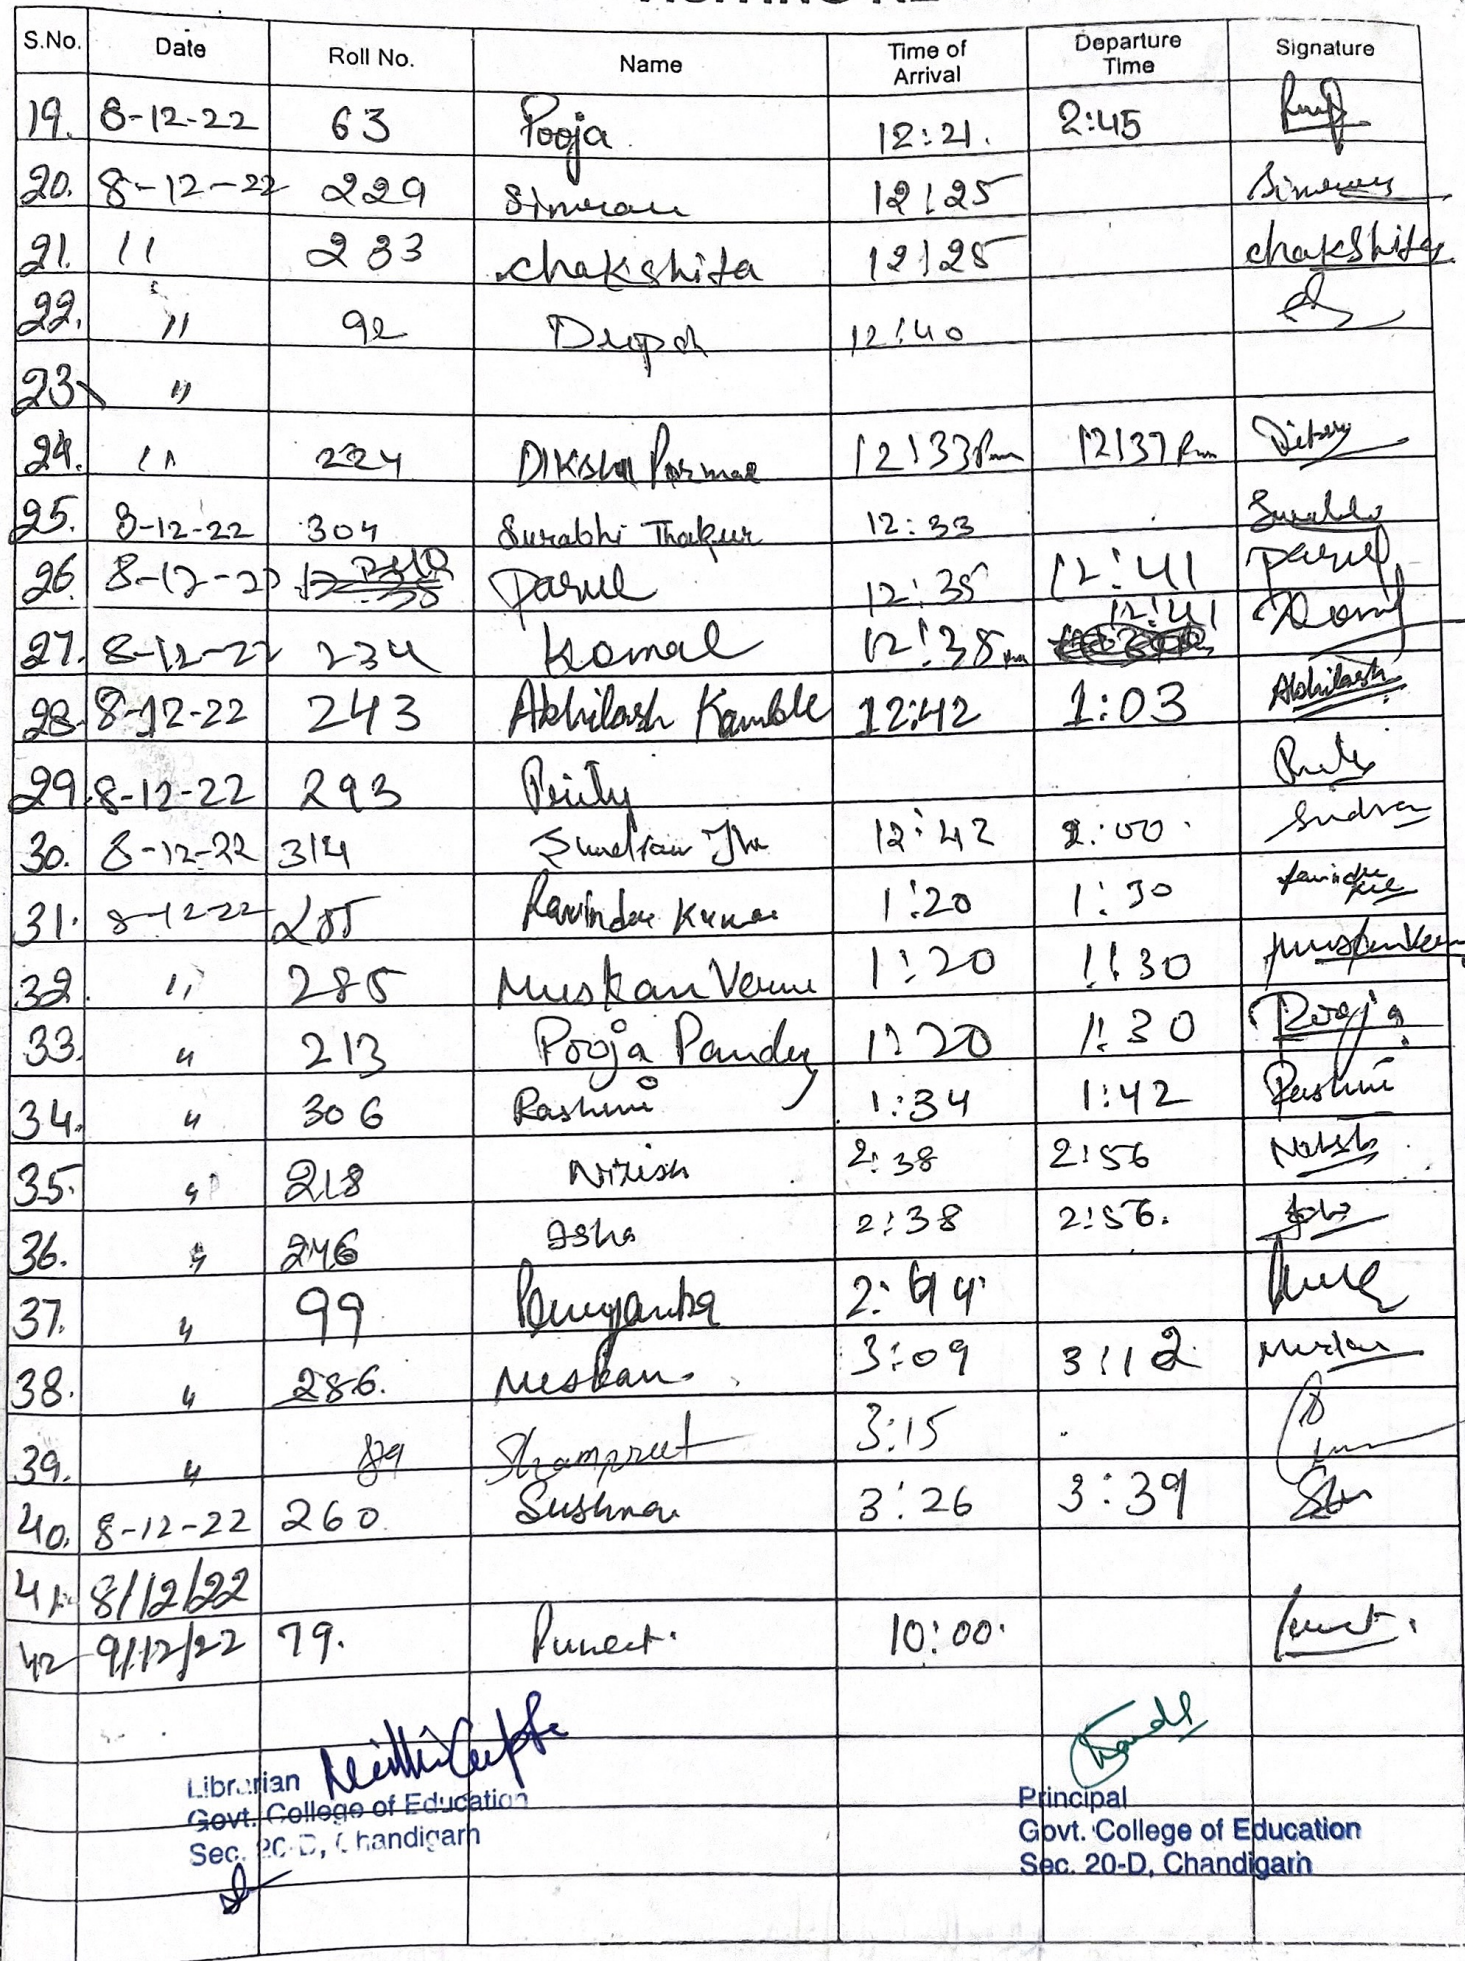 S.No. Date Roll No. Name Time of Arrival Departure Time Signature
19. 8-12-22 63 Pooja 12:21. 2:45
20. 8-12-22 229 Simran 12:25 Simran
21. 11 233 Chakshita 12:25 Chakshita
22. 11 92 12:40
23 "
24. 11 224 DIKSHA Parmar 12:33 Pm 12:37 Pm
25. 8-12-22 304 Surabhi Thakur 12:33
26. 8-12-22 Parul 12:35 12:41 Parul
27. 8-12-22 234 Komal 12:38 pm 12:41
28. 8-12-22 243 Abhilash Kamble 12:42 1:03 Abhilash
29. 8-12-22 293
30. 8-12-22 314 12:42 2:00
31. 8-12-22 Ravinder Kumar 1:20 1:30
32. 11 285 Muskan Verma 1:20 1:30 Muskan Verma
33. " 213 Pooja Pandey 1:20 1:30 Pooja
34. " 306 Rashmi 1:34 1:42 Rashmi
35. " 218 Nitish 2:38 2:56
36. " 246 Asha 2:38 2:56.
37. " 99 2:44
38. " 286. Muskan. 3:09 3:12 Muskan
39. " 89 3:15
40. 8-12-22 260 Sushma 3:26 3:39
41. 8/12/22
42 9/12/22 79. Puneet. 10:00.
Librarian
Govt. College of Education
Sec. 20-D, Chandigarh
Principal
Govt. College of Education
Sec. 20-D, Chandigarh